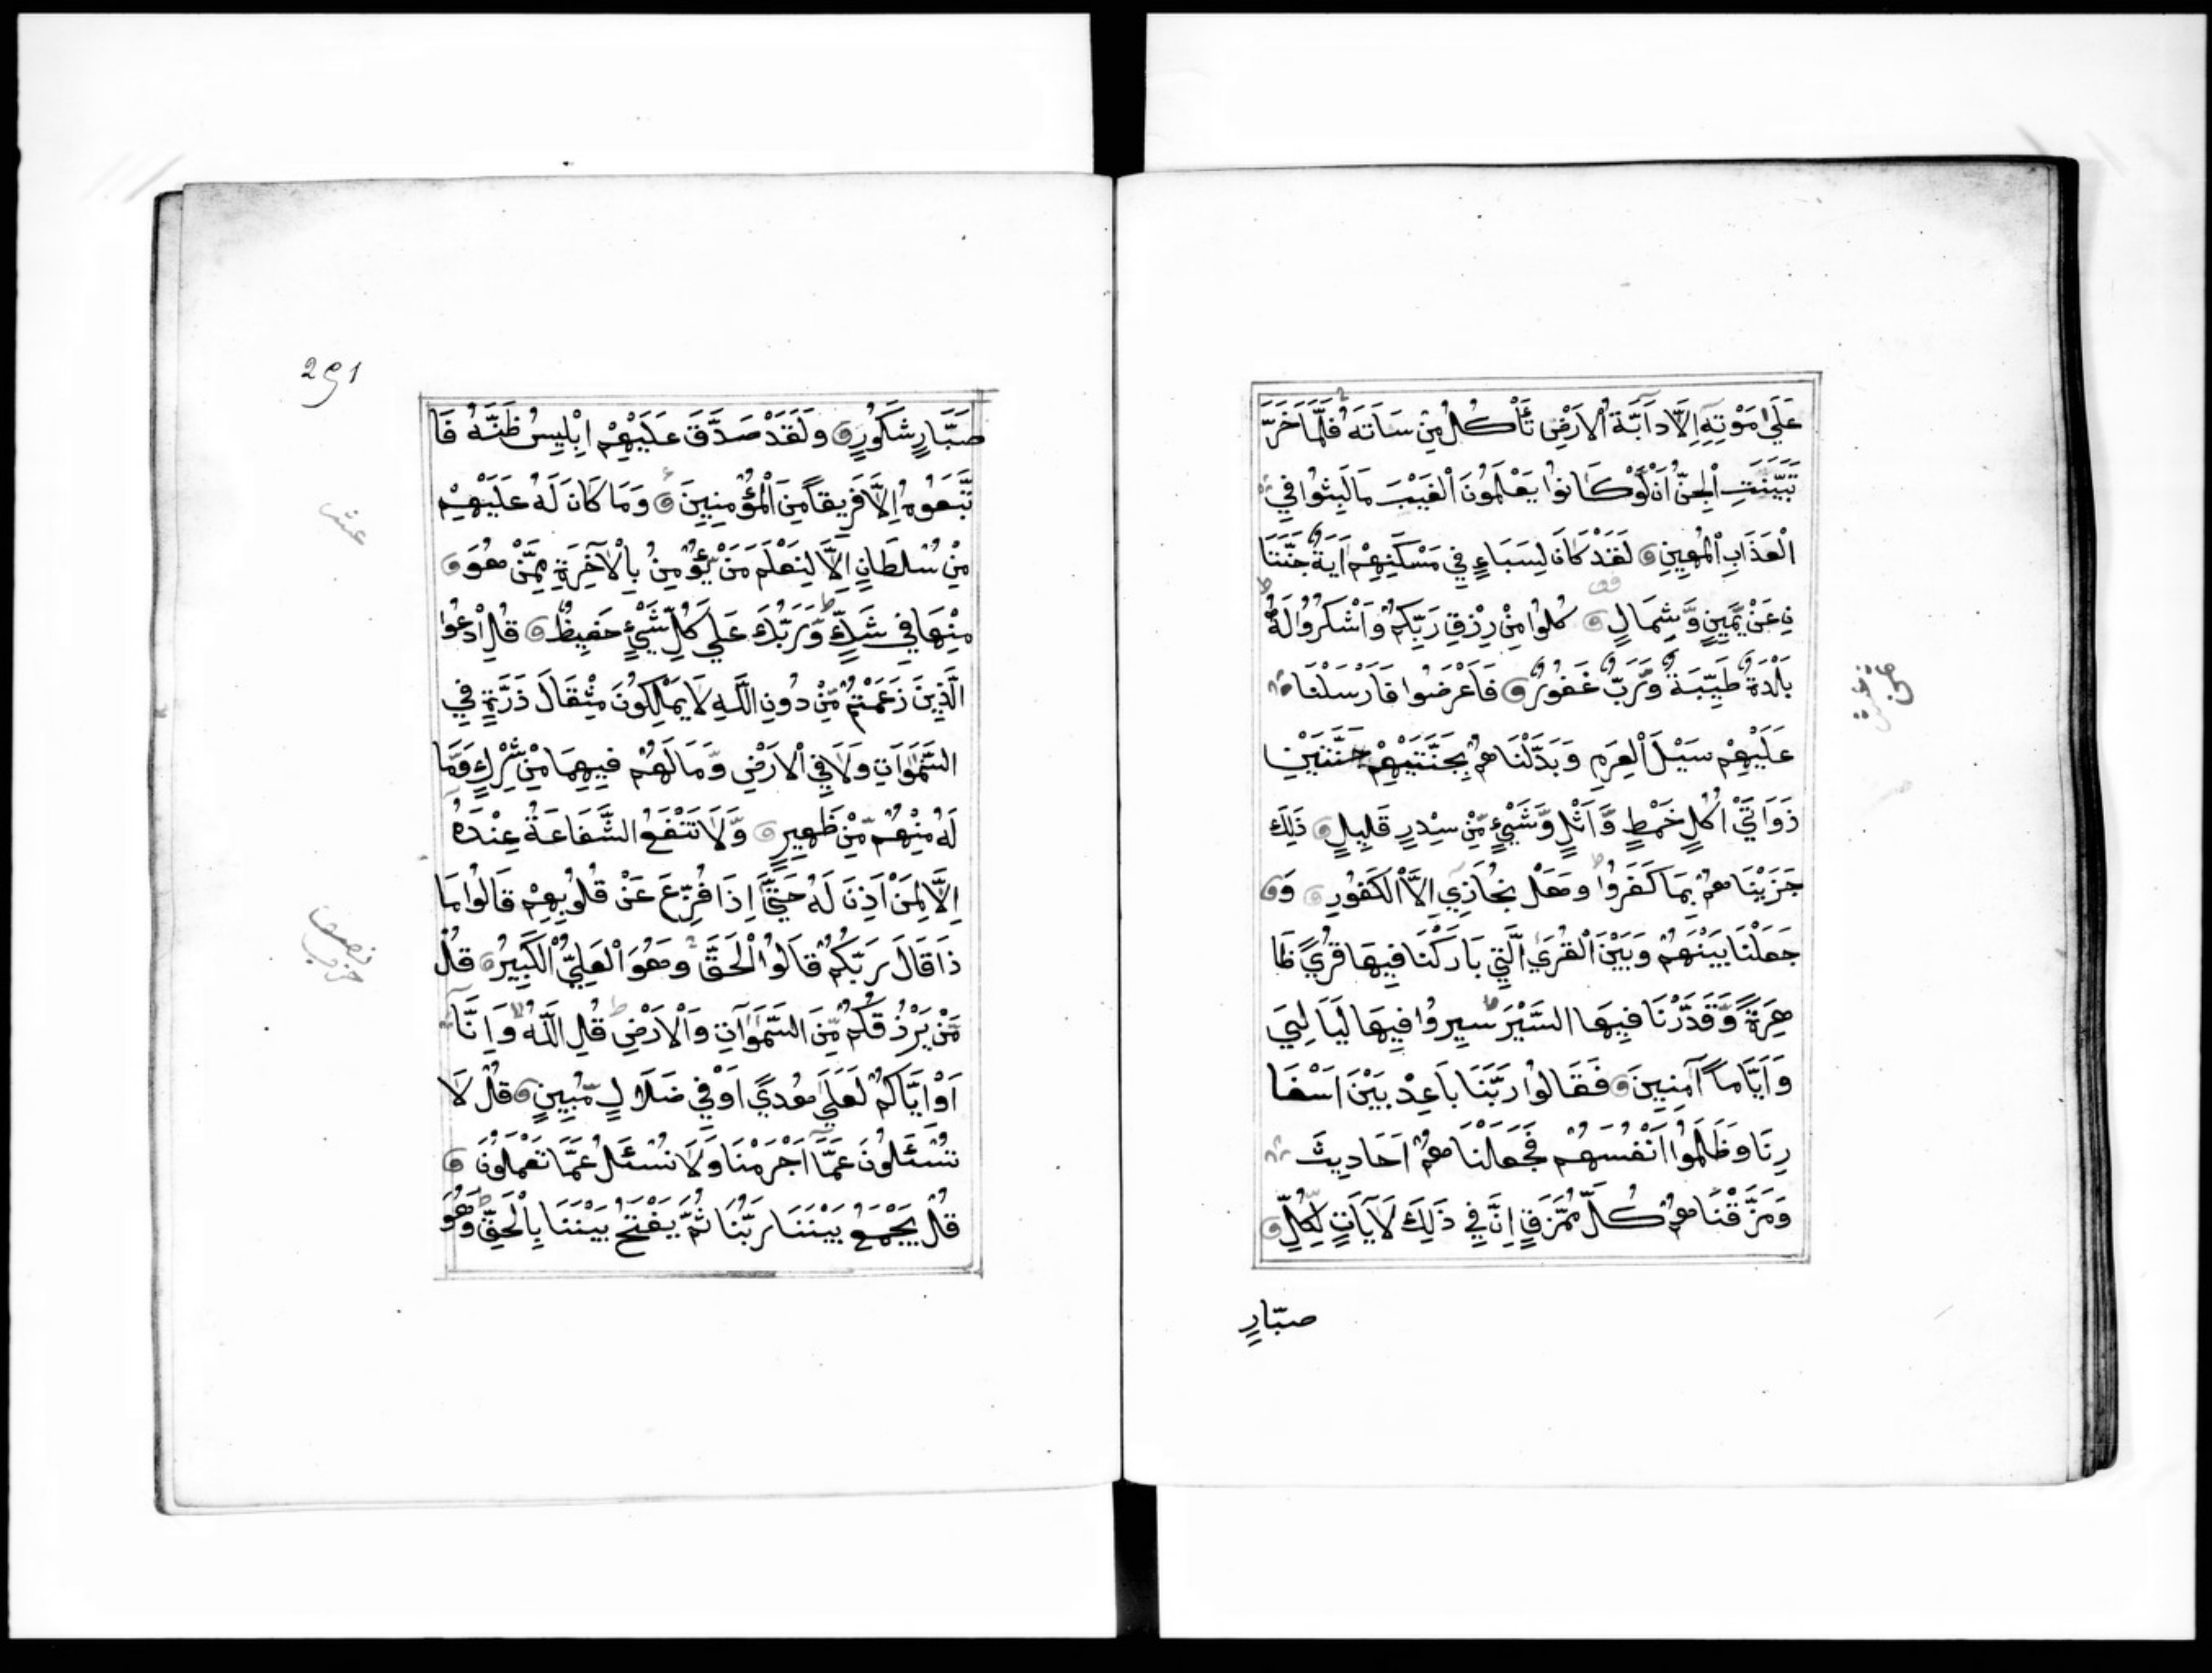 عَلَىٰ مَوْتِهِٓ اِلَّا دَآبَّةُ الْاَرْضِ تَأْكُلُ مِنْ سَاَتَهُ فَلَمَّا خَرَّ
تَبَيَّنَتِ الْجِنُّ اَنْ لَوْ كَانُوا يَعْلَمُونَ الْغَيْبَ مَا لَبِثُوا فِي
الْعَذَابِ الْمُهِينِ لَقَدْ كَانَ لِسَبَاءٍ فِي مَسْكَنِهِمْ اٰيَةٌ جَنَّتَا
نِ عَنْ يَّمِينٍ وَّشِمَالٍ كُلُوا مِنْ رِزْقِ رَبِّكُمْ وَاشْكُرُوا لَهُ
بَلْدَةٌ طَيِّبَةٌ وَّرَبٌّ غَفُورٌ فَاَعْرَضُوا فَاَرْسَلْنَا
عَلَيْهِمْ سَيْلَ الْعَرِمِ وَبَدَّلْنَاهُمْ بِجَنَّتَيْهِمْ جَنَّتَيْنِ
ذَوَاتَيْ اُكُلٍ خَمْطٍ وَّاَثْلٍ وَّشَيْءٍ مِّنْ سِدْرٍ قَلِيلٍ ذَلِكَ
جَزَيْنَاهُمْ بِمَا كَفَرُوا وَهَلْ نُجَازِي اِلَّا الْكَفُورَ وَ
جَعَلْنَا بَيْنَهُمْ وَبَيْنَ الْقُرَى الَّتِي بَارَكْنَا فِيهَا قُرًى ظَا
هِرَةً وَّقَدَّرْنَا فِيهَا السَّيْرَ سِيرُوا فِيهَا لَيَالِيَ
وَاَيَّامًا اٰمِنِينَ فَقَالُوا رَبَّنَا بَاعِدْ بَيْنَ اَسْفَا
رِنَا وَظَلَمُوا اَنْفُسَهُمْ فَجَعَلْنَاهُمْ اَحَادِيثَ
وَمَزَّقْنَاهُمْ كُلَّ مُمَزَّقٍ اِنَّ فِي ذَلِكَ لَاٰيَاتٍ لِّكُلِّ
صبّارٍ
291
صَبَّارٍ شَكُورٍ وَلَقَدْ صَدَّقَ عَلَيْهِمْ اِبْلِيسُ ظَنَّهُ فَا
تَّبَعُوهُ اِلَّا فَرِيقًا مِّنَ الْمُؤْمِنِينَ وَمَا كَانَ لَهُ عَلَيْهِمْ
مِّنْ سُلْطَانٍ اِلَّا لِنَعْلَمَ مَنْ يُّؤْمِنُ بِالْاٰخِرَةِ مِمَّنْ هُوَ
مِنْهَا فِي شَكٍّ وَّرَبُّكَ عَلَى كُلِّ شَيْءٍ حَفِيظٌ قُلِ ادْعُوا
الَّذِينَ زَعَمْتُمْ مِّنْ دُونِ اللَّهِ لَا يَمْلِكُونَ مِثْقَالَ ذَرَّةٍ فِي
السَّمٰوَاتِ وَلَا فِي الْاَرْضِ وَمَا لَهُمْ فِيهِمَا مِنْ شِرْكٍ وَّمَا
لَهُ مِنْهُمْ مِّنْ ظَهِيرٍ وَّلَا تَنْفَعُ الشَّفَاعَةُ عِنْدَهُ
اِلَّا لِمَنْ اَذِنَ لَهُ حَتَّىٰ اِذَا فُزِّعَ عَنْ قُلُوبِهِمْ قَالُوا مَا
ذَا قَالَ رَبُّكُمْ قَالُوا الْحَقَّ وَهُوَ الْعَلِيُّ الْكَبِيرُ قُلْ
مَّنْ يَرْزُقُكُمْ مِّنَ السَّمَوَاتِ وَالْاَرْضِ قُلِ اللّٰهُ وَاِنَّا
اَوْ اِيَّاكُمْ لَعَلَىٰ هُدًى اَوْ فِي ضَلَالٍ مُّبِينٍ قُلْ لَا
تُسْئَلُونَ عَمَّا اَجْرَمْنَا وَلَا نُسْئَلُ عَمَّا تَعْمَلُونَ
قُلْ يَجْمَعُ بَيْنَنَا رَبُّنَا ثُمَّ يَفْتَحُ بَيْنَنَا بِالْحَقِّ وَهُوَ
عشر
نصف
حزب